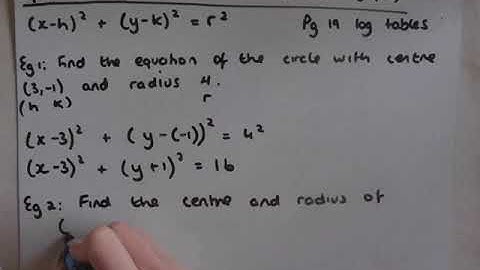 (x-h)² + (y-k)² = r² Pg 19 log tables
Eg 1: Find the equation of the circle with centre
(3,-1) and radius 4.
(h k) r
(x-3)² + (y-(-1))² = 4²
(x-3)² + (y+1)² = 16
Eg 2: Find the centre and radius of
(